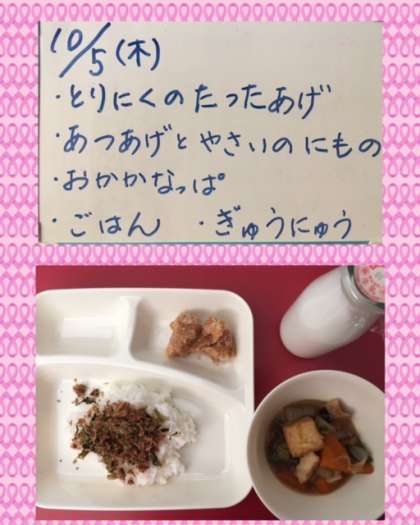 10/5(木)
・とりにくのたったあげ
・あつあげとやさいのにもの
・おかかなっぱ
・ごはん ・ぎゅうにゅう